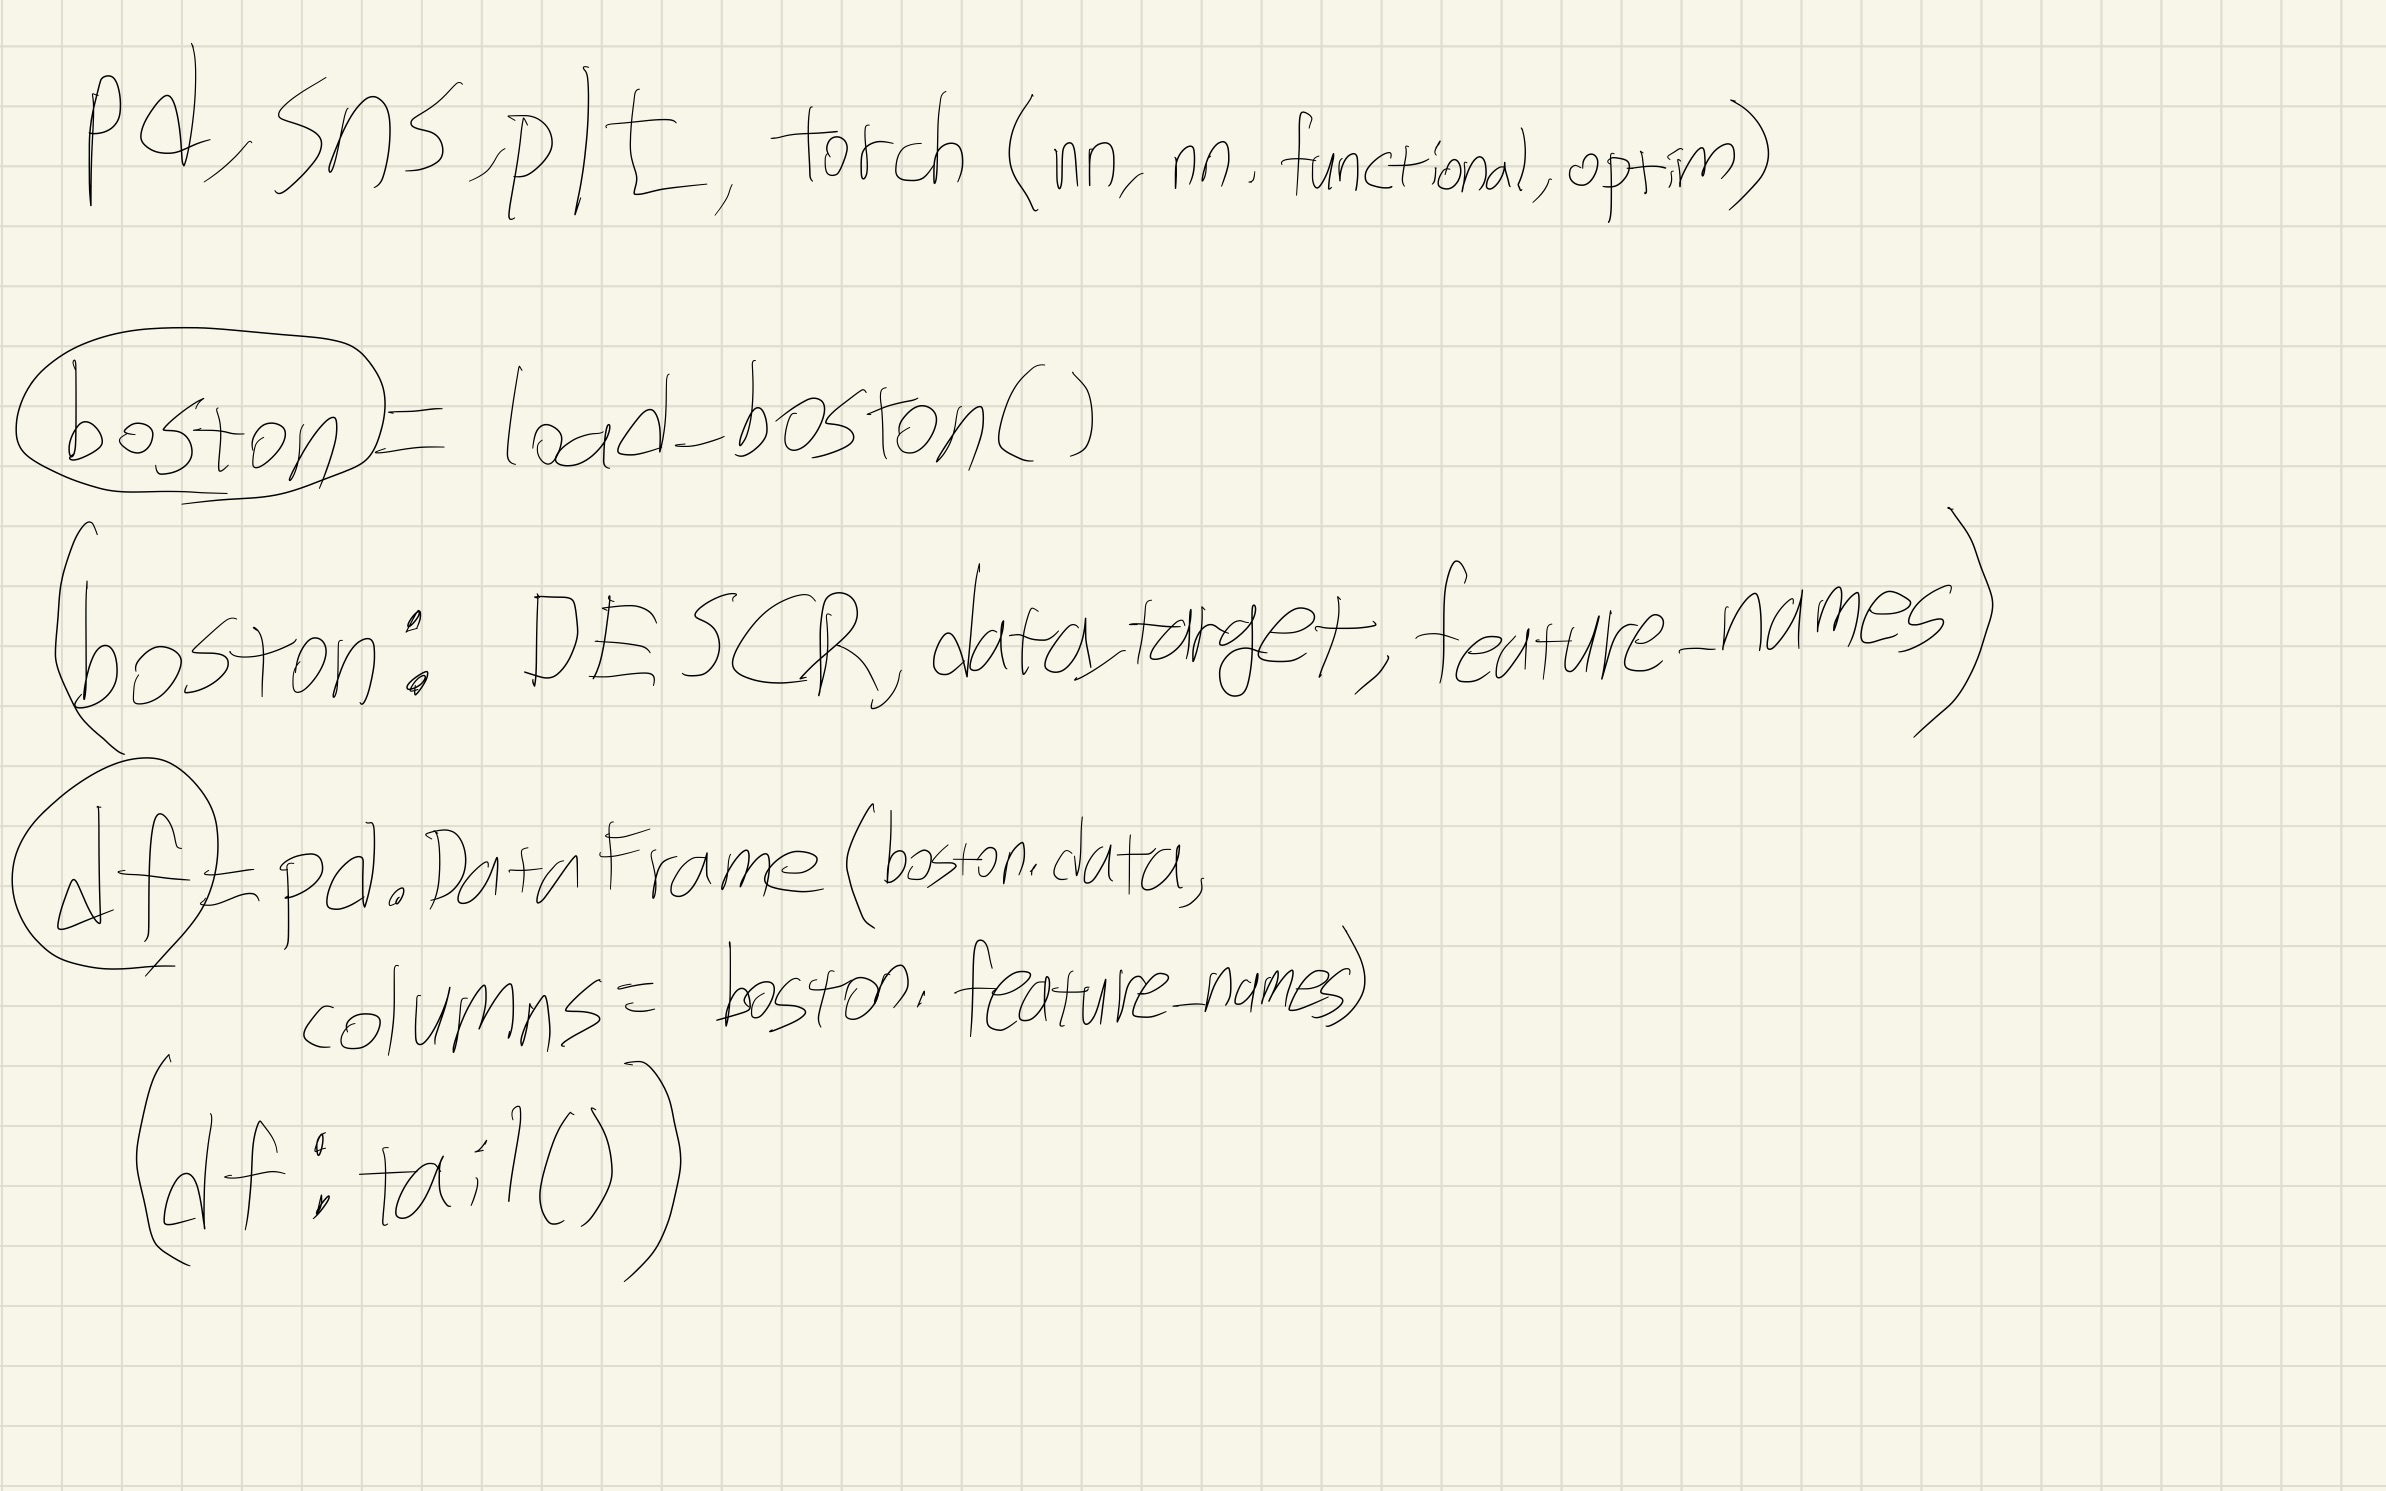 pd, sns, plt, torch (nn, nn. functional, optim)
boston = load_boston()
(boston: DESCR, data, target, feature_names)
df = pd.DataFrame(boston.data,
columns= boston. feature_names)
(df: tail())